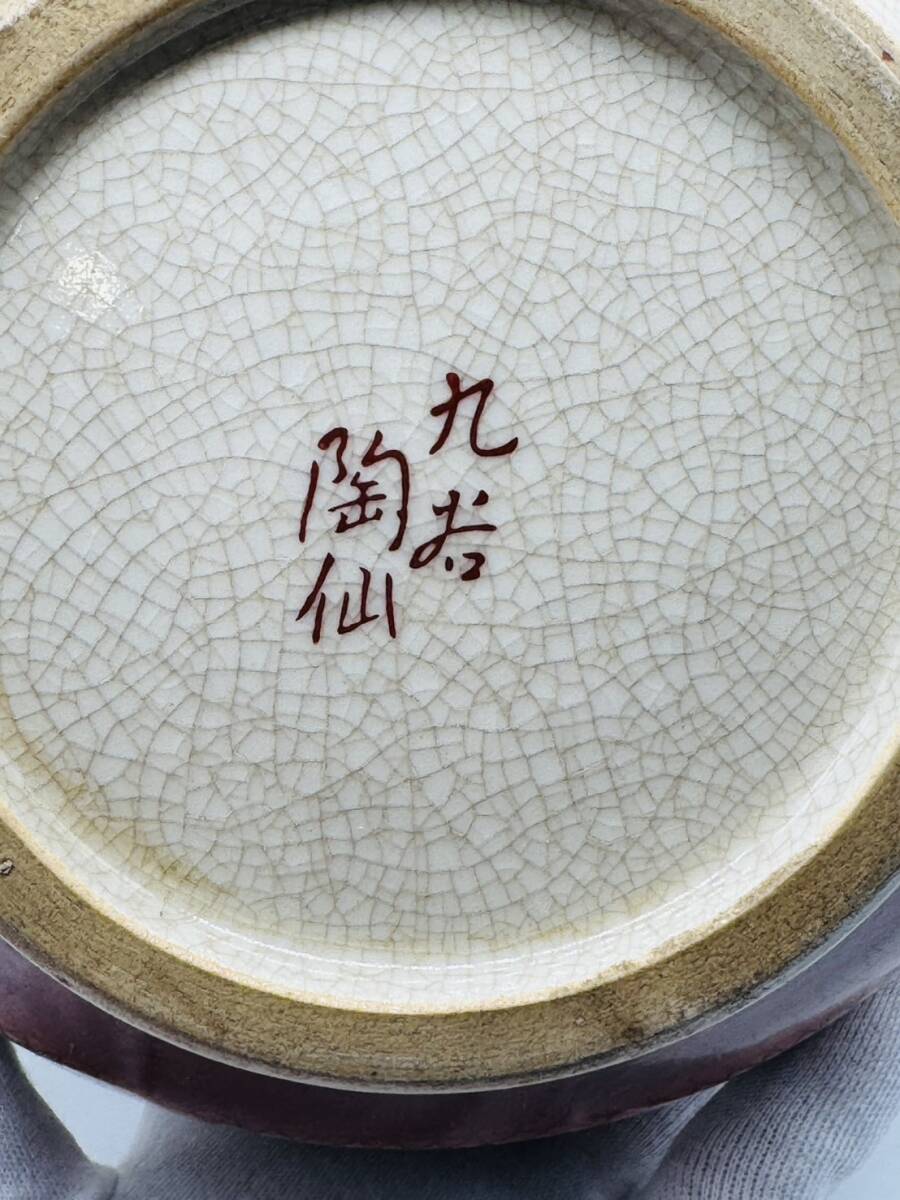 九谷
陶仙